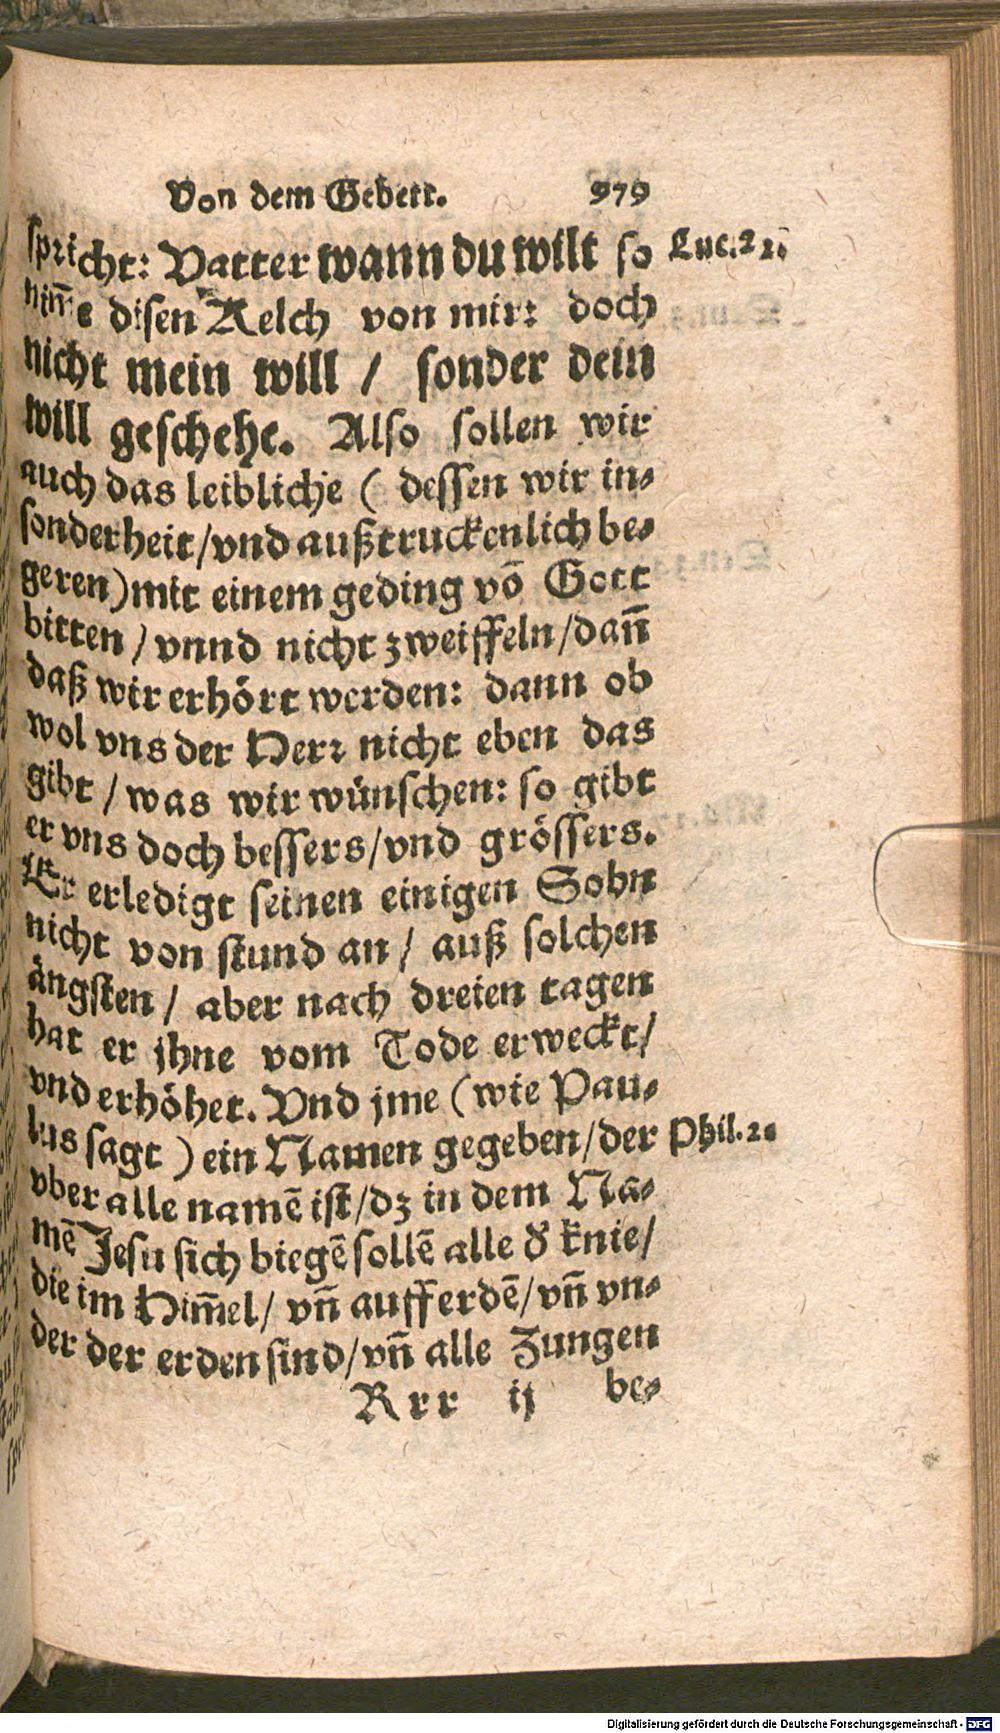 Von dem Gebett. 979
spricht: Vatter wann du wilt so Luc.22.
nim̃e disen Kelch von mir: doch
nicht mein will / sonder dein
will geschehe. Also sollen wir
auch das leibliche ( dessen wir in⸗
sonderheit/vnd außtruckenlich be⸗
geren)mit einem geding võ Gott
bitten / vnnd nicht zweiffeln/dañ
daß wir erhört werden: dann ob
wol vns der Herr nicht eben das
gibt / was wir wünschen: so gibt
er vns doch bessers/vnd grössers.
Er erledigt seinen einigen Sohn
nicht von stund an / auß solchen
ängsten / aber nach dreien tagen
hat er jhne vom Tode erweckt/
vnd erhöhet. Vnd jme (wie Pau⸗
lus sagt ) ein Namen gegeben/der Phil.2.
vber alle namẽ ist/dz in dem Na⸗
mẽ Jesu sich biegẽ sollẽ alle d̕ knie/
die im Him̃el/ vñ auff erdẽ/vñ vn⸗
der der erden sind/vñ alle Zungen
Rrr ij be⸗
Digitalisierung gefördert durch die Deutsche Forschungsgemeinschaft - DFG